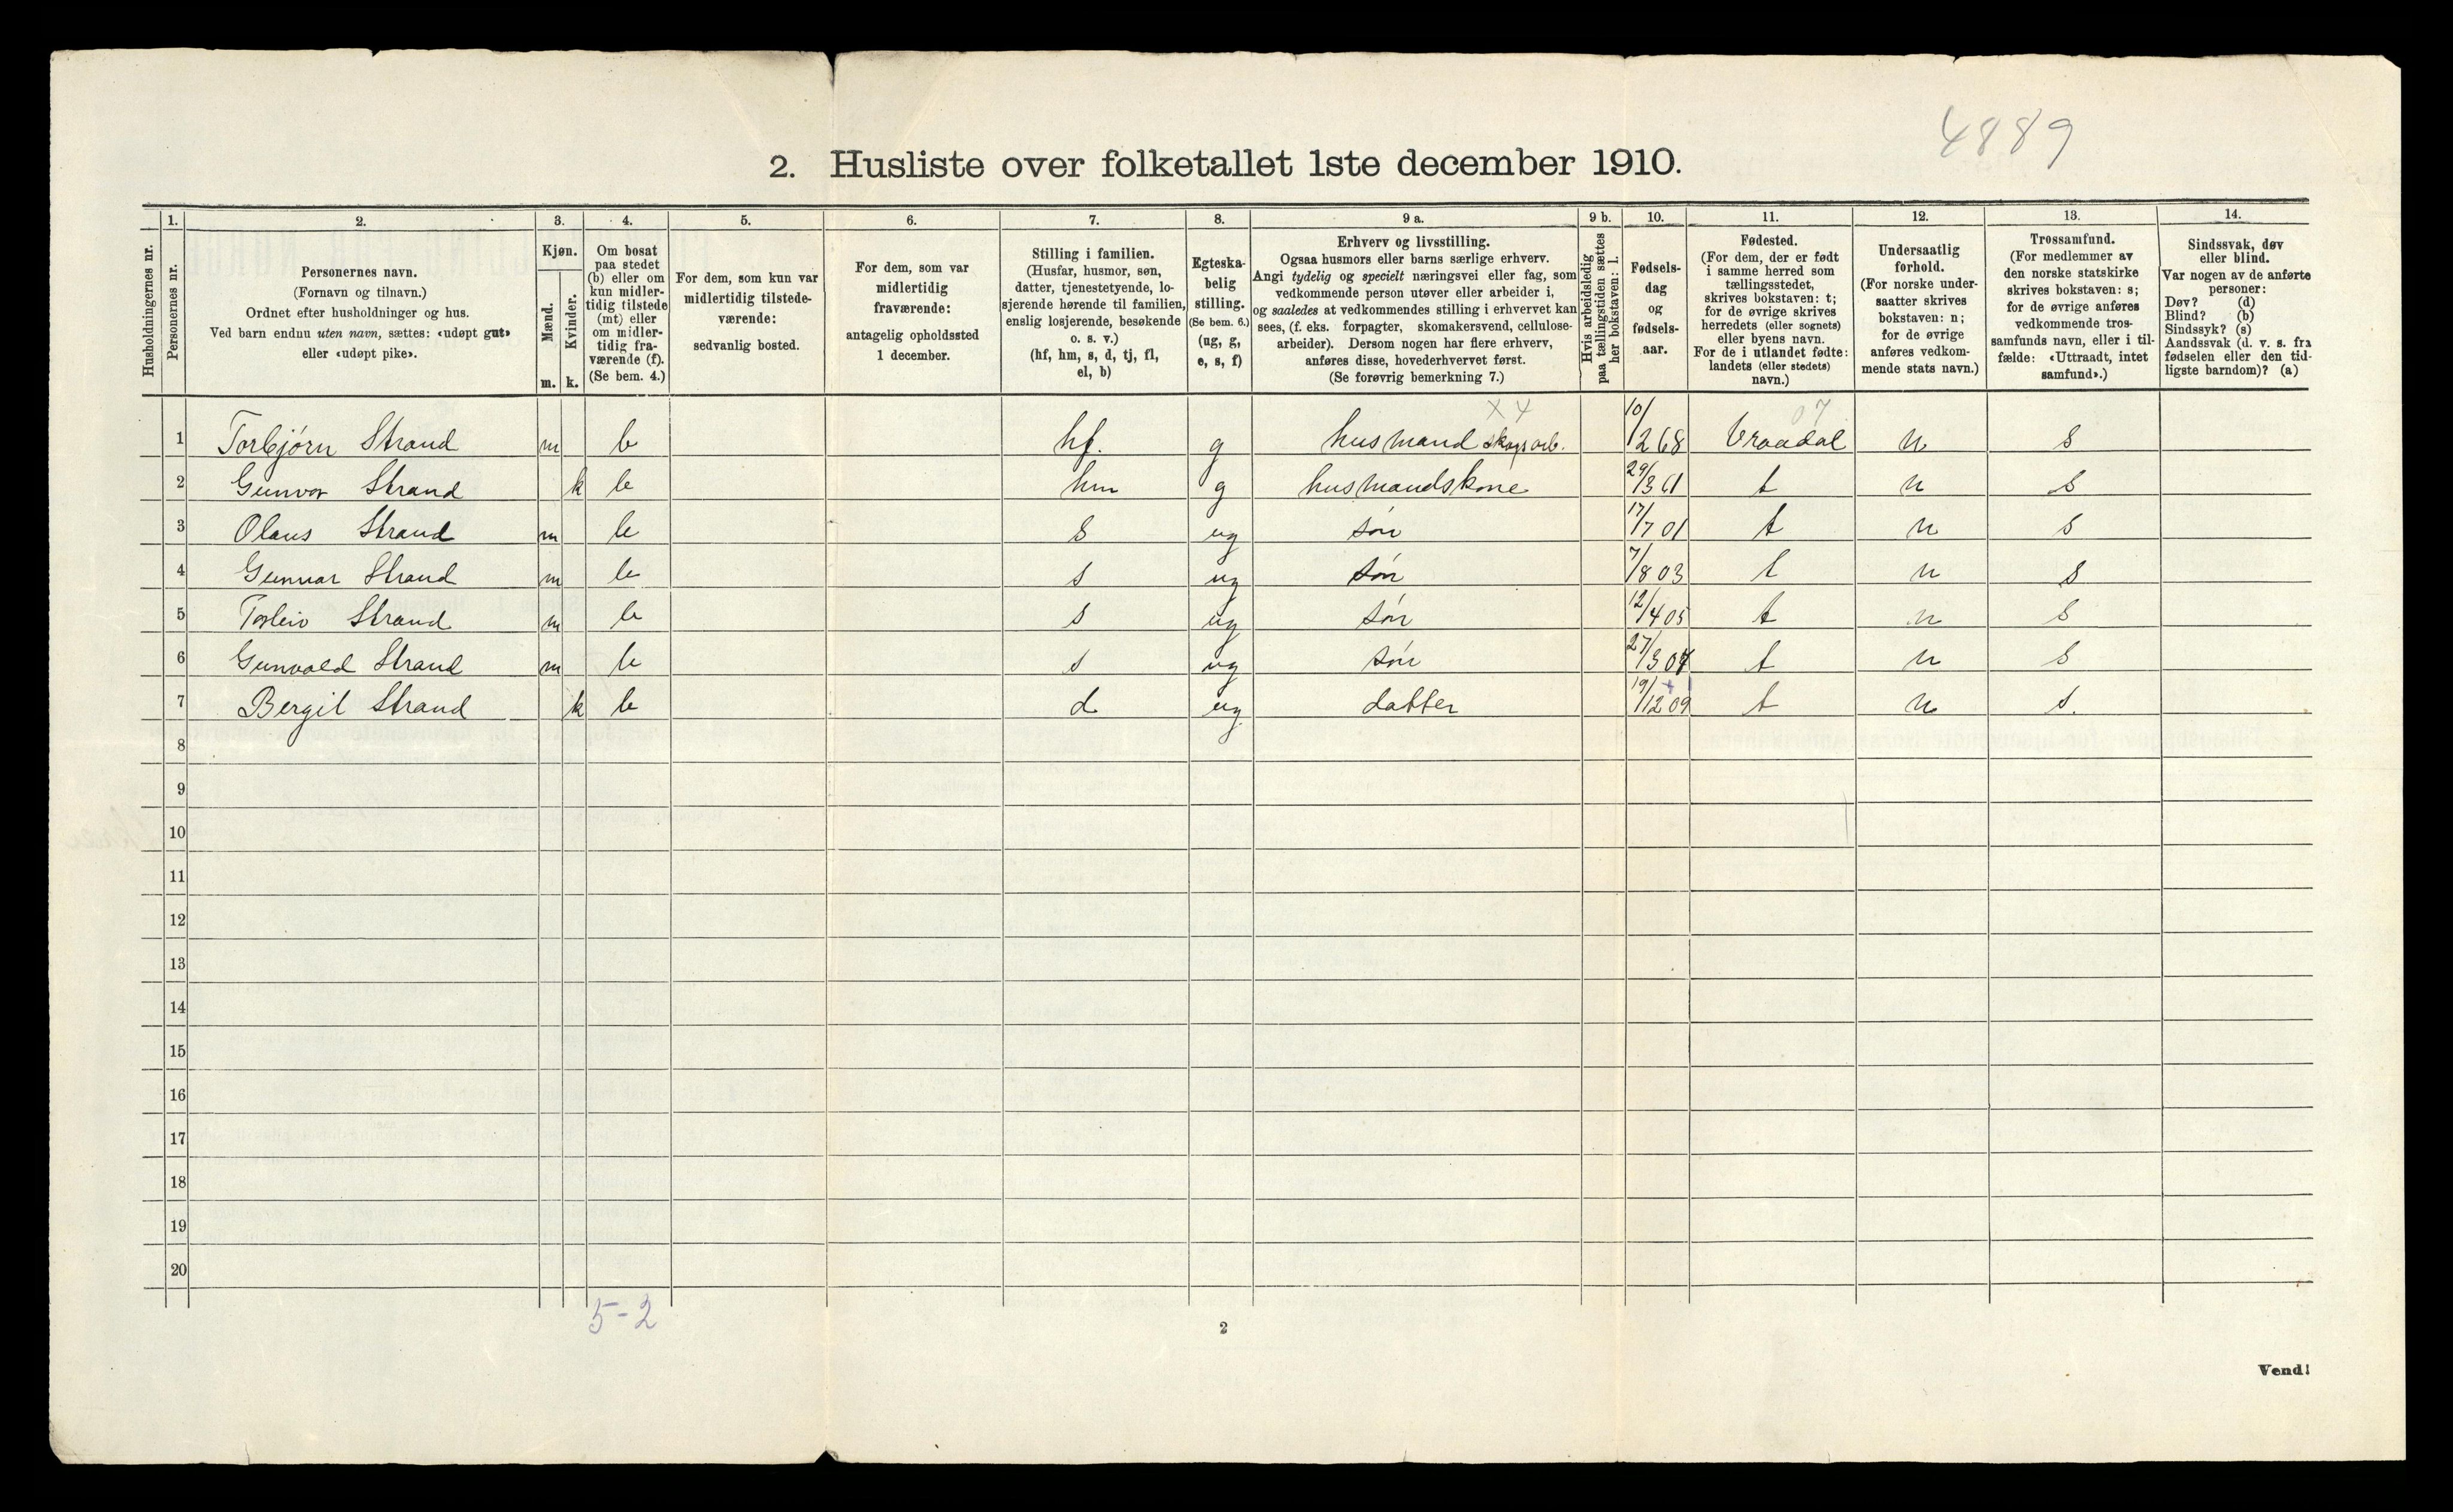 4889
2. Husliste over folketallet 1ste december 1910.
Husholdningernes nr.
1.
Personernes nr.
2.
Personernes navn.
(Fornavn og tilnavn.)
Ordnet efter husholdninger og hus.
Ved barn endnu uten navn, sættes: «udøpt gut»
eller «udøpt pike».
3.
Kjøn.
Mænd.
Kvinder.
m. k.
4.
Om bosat
paa stedet
(b) eller om
kun midler-
tidig tilstede
(mt) eller
om midler-
tidig fra-
værende (f).
(Se bem. 4.)
5.
For dem, som kun var
midlertidig tilstede-
værende:
sedvanlig bosted.
6.
For dem, som var
midlertidig
fraværende:
antagelig opholdssted
1 december.
7.
Stilling i familien.
(Husfar, husmor, søn,
datter, tjenestetyende, lo-
sjerende hørende til familien,
enslig losjerende, besøkende
o. s. v.)
(hf, hm, s, d, tj, fl,
el, b)
8.
Egteska-
belig
stilling.
(Se bem. 6.)
(ug, g,
e, s, f)
9 a.
Erhverv og livsstilling.
Ogsaa husmors eller barns særlige erhverv.
Angi tydelig og specielt næringsvei eller fag, som
vedkommende person utøver eller arbeider i,
og saaledes at vedkommendes stilling i erhvervet kan
sees, (f. eks. forpagter, skomakersvend, cellulose-
arbeider). Dersom nogen har flere erhverv,
anføres disse, hovederhvervet først.
(Se forøvrig bemerkning 7.)
9 b.
Hvis arbeidsledig
paa tællingstiden sættes
her bokstaven: l.
10.
Fødsels-
dag
og
fødsels-
aar.
11.
Fødested.
(For dem, der er født
i samme herred som
tællingsstedet,
skrives bokstaven: t;
for de øvrige skrives
herredets (eller sognets)
eller byens navn.
For de i utlandet fødte:
landets (eller stedets)
navn.)
12.
Undersaatlig
forhold.
(For norske under-
saatter skrives
bokstaven: n;
for de øvrige
anføres vedkom-
mende stats navn.)
13.
Trossamfund.
(For medlemmer av
den norske statskirke
skrives bokstaven: s;
for de øvrige anføres
vedkommende tros-
samfunds navn, eller i til-
fælde: «Uttraadt, intet
samfund».)
14.
Sindssvak, døv
eller blind.
Var nogen av de anførte
personer:
Døv? (d)
Blind? (b)
Sindssyk? (s)
Aandssvak (d. v. s. fra
fødselen eller den tid-
ligste barndom)? (a)
x 4 07
1 Torbjørn Strand m b hf. g husmand skogsarb. 10/2 68 Vraadal n s
2 Gunvor Strand k b hm g husmandskone 29/3 61 t n s
3 Olaus Strand m b s ug søn 17/7 01 t n s
4 Gunnar Strand m b s ug søn 7/8 03 t n s
5 Torleiv Strand m b s ug søn 12/4 05 t n s
6 Gunvald Strand m b s ug søn 27/3 07 t n s
7 Bergit Strand k b d ug datter 19/12 09 t n s.
8
9
10
11
12
13
14
15
16
17
18
19
20
5-2
2
Vend!